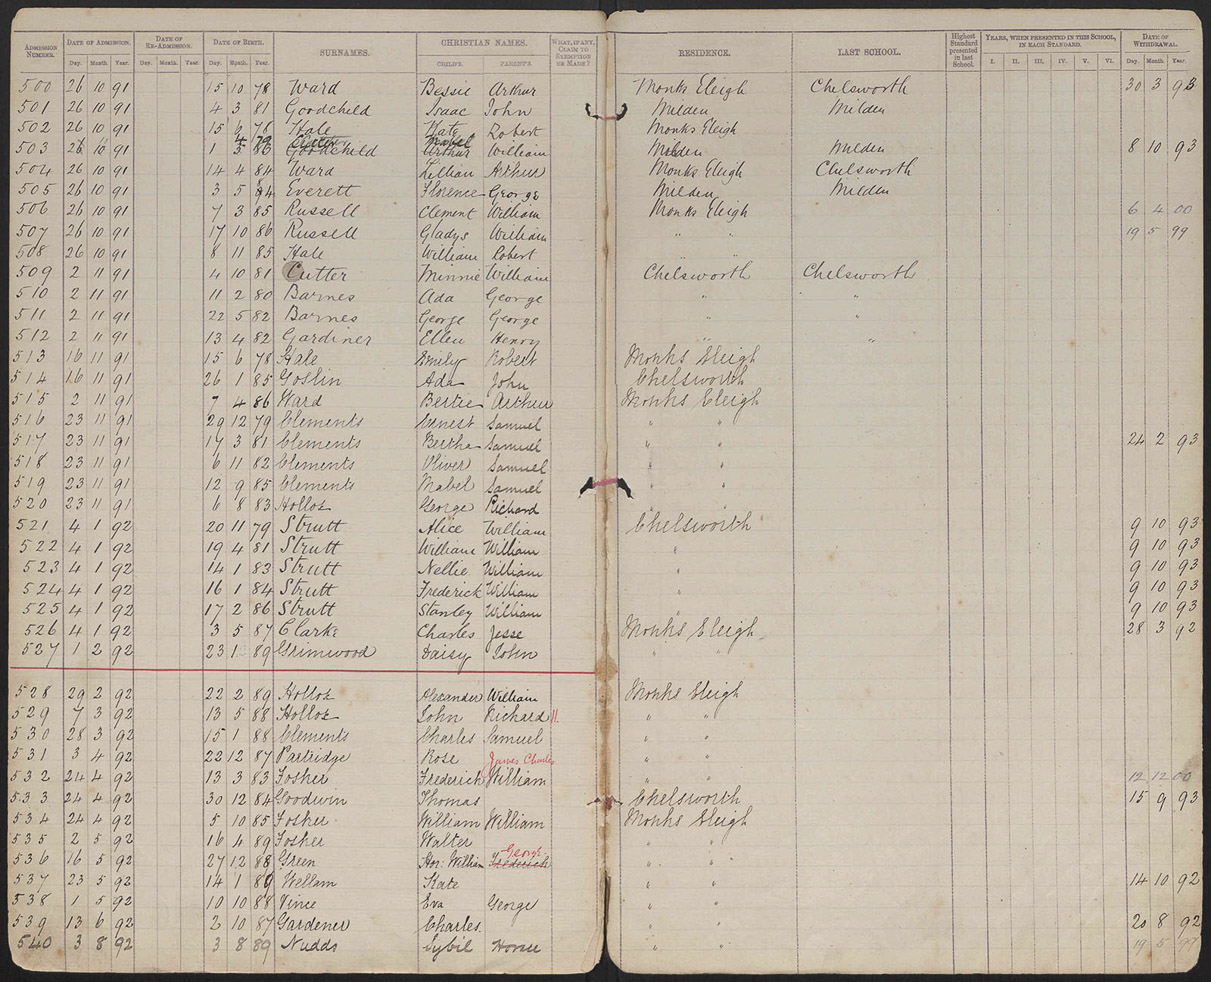 ADMISSION NUMBER. DATE OF ADMISSION. DATE OF RE-ADMISSION. DATE OF BIRTH. SURNAMES. CHRISTIAN NAMES. WHAT, IF ANY, CLAIM TO EXEMPTION IS MADE? RESIDENCE. LAST SCHOOL. Highest Standard presented in last School. YEARS, WHEN PRESENTED IN THIS SCHOOL, IN EACH STANDARD. DATE OF WITHDRAWAL.
Day. Month. Year. Day. Month. Year. Day. Month. Year. CHILD'S. PARENT'S. I. II. III. IV. V. VI. Day. Month. Year.
500 26 10 91 15 10 78 Ward Bessie Arthur Monks Eleigh Chelsworth 30 3 93
501 26 10 91 4 3 81 Goodchild Isaac John Milden Milden
502 26 10 91 15 6 78 Hale Kate Robert Monks Eleigh
503 26 10 91 1 3 86 Goodchild Arthur William Milden Milden 8 10 93
504 26 10 91 14 4 84 Ward Lillian Arthur Monks Eleigh Chelsworth
505 26 10 91 3 5 84 Everett Florence George Milden Milden
506 26 10 91 7 3 85 Russell Clement William Monks Eleigh 6 4 00
507 26 10 91 17 10 86 Russell Gladys William " " 19 5 99
508 26 10 91 8 11 85 Hale William Robert " "
509 2 11 91 4 10 81 Cutter Minnie William Chelsworth Chelsworth
510 2 11 91 11 2 80 Barnes Ada George " "
511 2 11 91 22 5 82 Barnes George George " "
512 2 11 91 13 4 82 Gardiner Ellen Henry " "
513 16 11 91 15 6 78 Hale Emily Robert Monks Eleigh
514 16 11 91 26 1 85 Goslin Ada John Chelsworth
515 2 11 91 7 4 86 Ward Bertie Arthur Monks Eleigh
516 23 11 91 29 12 79 Clements Ernest Samuel " "
517 23 11 91 17 3 81 Clements Bertha Samuel " " 24 2 93
518 23 11 91 6 11 82 Clements Oliver Samuel " "
519 23 11 91 12 9 85 Clements Mabel Samuel " "
520 23 11 91 6 8 83 Hollox George Richard " "
521 4 1 92 20 11 79 Strutt Alice William Chelsworth 9 10 93
522 4 1 92 19 4 81 Strutt William William " 9 10 93
523 4 1 92 14 1 83 Strutt Nellie William " 9 10 93
524 4 1 92 16 1 84 Strutt Frederick William " 9 10 93
525 4 1 92 17 2 86 Strutt Stanley William " 9 10 93
526 4 1 92 3 5 87 Clarke Charles Jesse Monks Eleigh 28 3 92
527 1 2 92 23 1 89 Grimwood Daisy John " "
528 29 2 92 22 2 89 Hollox Alexander William Monks Eleigh
529 7 3 92 13 5 88 Hollox John Richard " "
530 28 3 92 15 1 88 Clements Charles Samuel " "
531 3 4 92 22 12 87 Partridge Rose James Charles " "
532 24 4 92 13 3 83 Fosker Frederick William " " 12 12 00
533 24 4 92 30 12 84 Goodwin Thomas Chelsworth 15 9 93
534 24 4 92 5 10 85 Fosker William William Monks Eleigh
535 2 5 92 16 4 89 Fosker Walter " "
536 16 5 92 27 12 88 Green Hor. William Frederick George " "
537 23 5 92 14 1 89 Wellam Kate " " 14 10 92
538 1 5 92 10 10 88 Vince Eva George " "
539 13 6 92 2 10 87 Gardener Charles " " 20 8 92
540 3 8 92 3 8 89 Nudds Sybil Horace " " 19 5 99